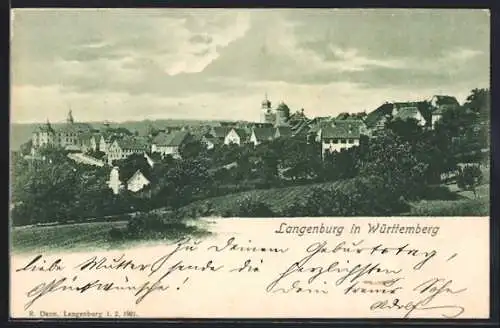 Langenburg in Württemberg
Zu Deinem Geburtstag,
liebe Mutter sende die herzlichsten
Glückwünsche! Dein treuer Sohn
Adolf
R. Dann, Langenburg 1. 2. 1901.